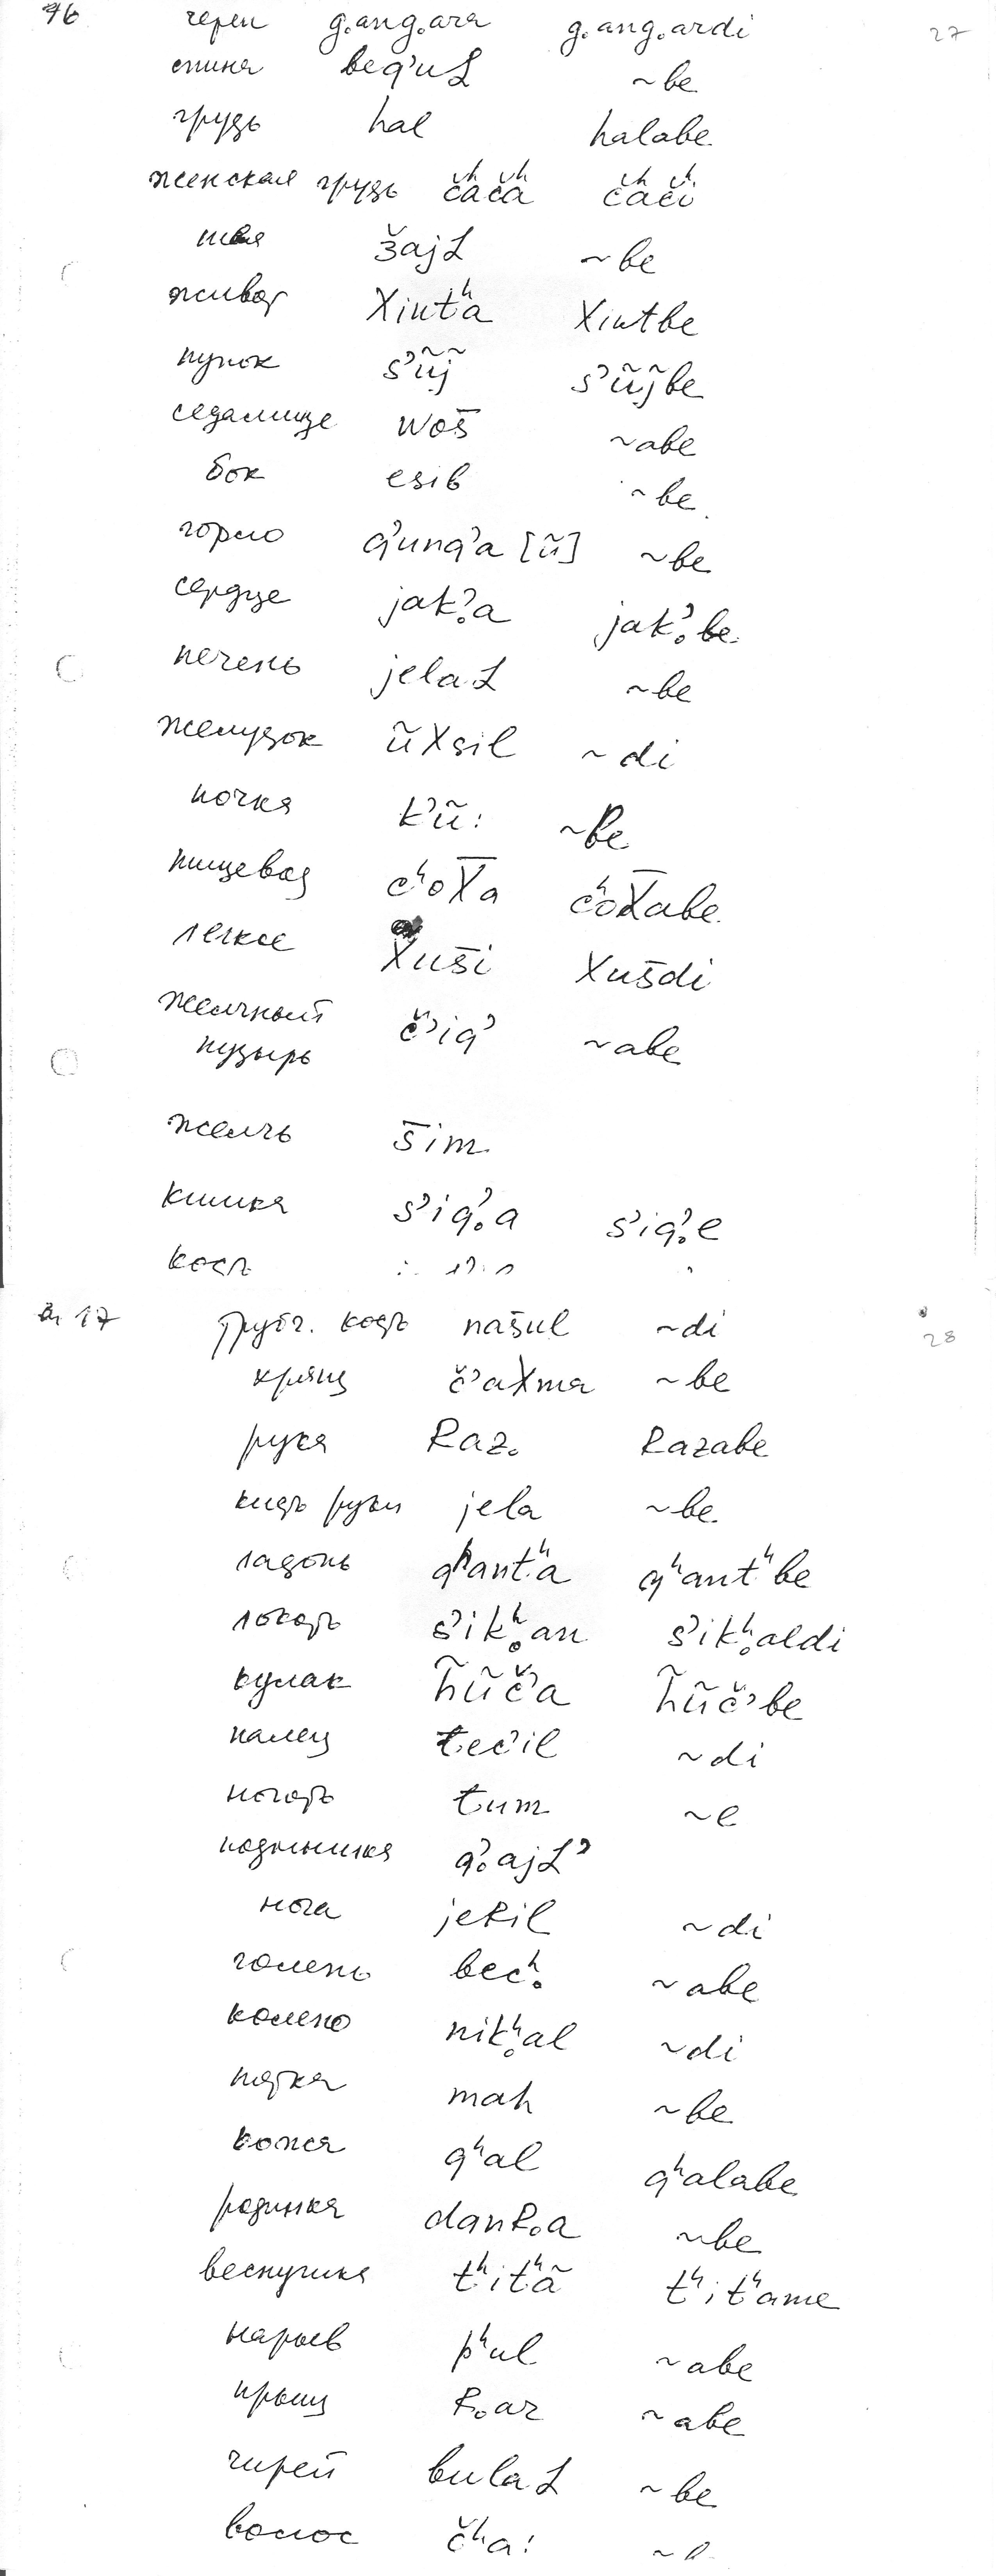 96 череп g.ang.ara g.ang.ardi 27
спина beq'uL ~be
грудь hal halabe
женская грудь čʰačʰa čʰačʰi
шея ǯajL ~be
живот Xintʰa Xintbe
пупок s'ũj̃ s'ũj̃be
седалище woš ~abe
бок esib ~be
горло q'unq'a [ũ] ~be
сердце jak'.a jak'.be
печень jelaL ~be
желудок ũXsil ~di
почка k'ũ: ~be
пищевод cʰoX̄a cʰoX̄abe
легкое Xuši Xušdi
желчный č'iq' ~abe
пузырь
желчь šim
кишка s'iq'.a s'iq'.e
кость
17 трубч. кость našul ~di 28
хрящ č'aXma ~be
рука Raz. Razabe
кисть руки jela ~be
ладонь qʰantʰa qʰantʰbe
локоть s'ikʰ.an s'ikʰ.aldi
кулак h̃ũč'a h̃ũč'be
палец t̶ec'il ~di
ноготь t̶um ~e
подмышка q'.ajL'
нога jeRil ~di
голень becʰ. ~abe
колено nikʰ.al ~di
пятка mah ~be
кожа qʰal qʰalabe
родинка danR.a ~be
веснушка tʰitʰã tʰitʰame
нарыв pʰul ~abe
прыщ R.az ~abe
чирей bulaL ~be
волос čʰa: